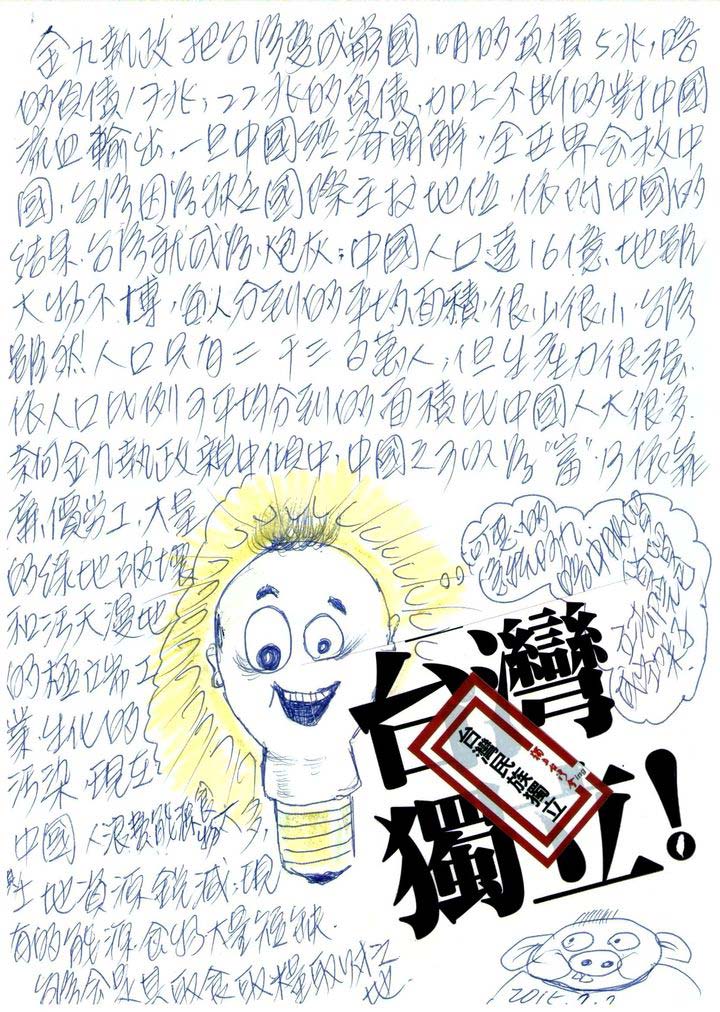 金九執政把台湾變成崩國,明的負債5兆,暗
的負債17兆,22兆的負債,加上不斷的對中國
流血輸出,一旦中國經済崩解,全世界会救中
國,台湾因為缺乏國際主权地位,依附中國的
結果.台湾就成為炮灰;中國人口達16億.地雖
大物不博,每人分到的平均面積,很小很小,台湾
雖然人口只有二千三百萬人;但生産力很强.
依人口比例,平均分到的面積比中國人大很多.
奈何金九執政親中傾中,中國之所以為"富"只依靠
廉價勞工,大量
的綠地破壞
和污天漫地
的極
業.生化的
污染.現在
中國人浪費能源食物太多,
土地資源銳減;現
有的能源.食物大量短缺.
台湾会是其取食取糧取財之
地.
台灣
獨立!
台灣民族獨立
ing